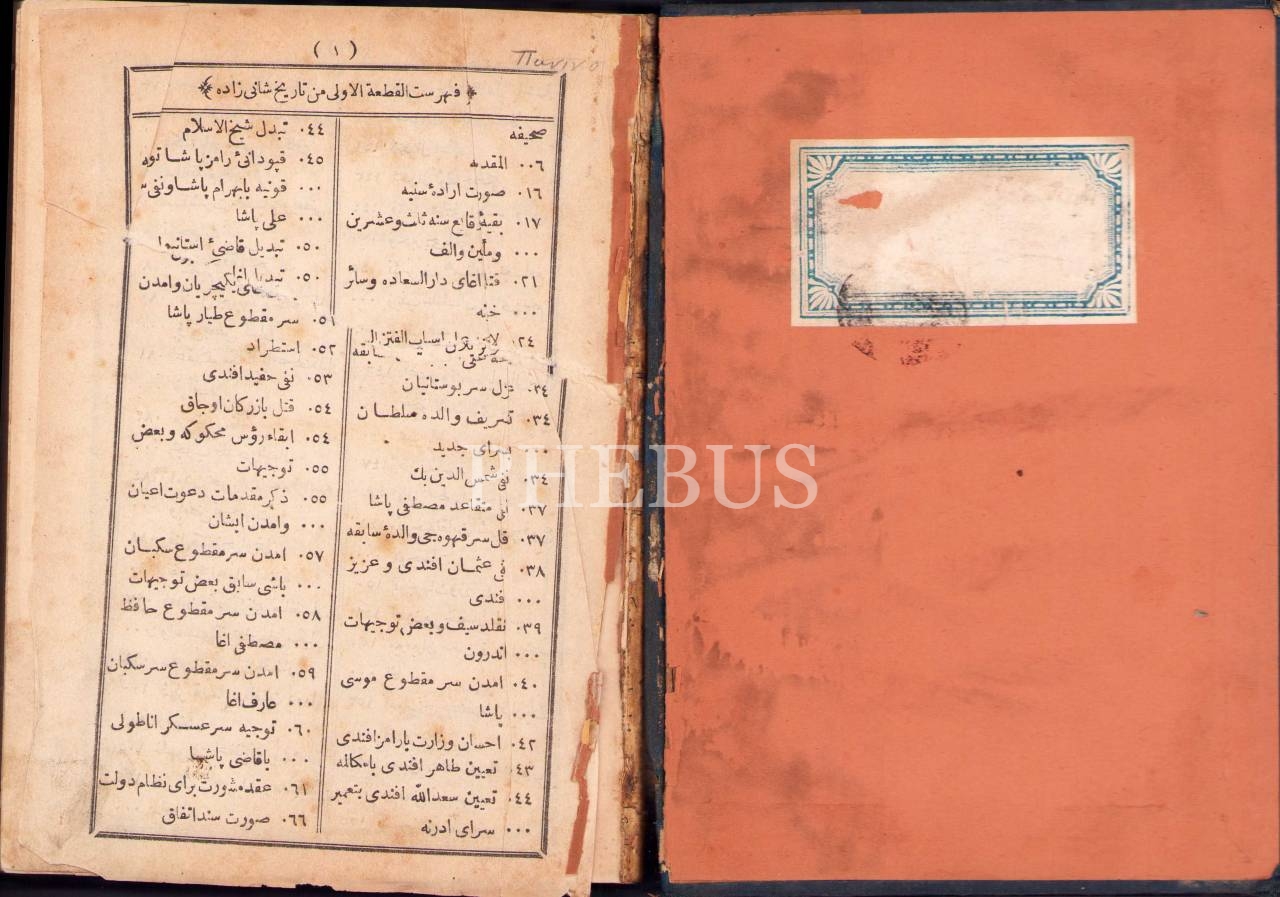 (١)
فهرست القطعة الاولى من تاريخ شانى زاده
صحيفه
٠٠٦ المقدمه
٠١٦ صورت ارادۀ سنيه
٠١٧ بقيۀ وقايع سنه ثلث وعشرين
٠٠٠ ومأتين والف
٠٢١ قتل اغاى دار السعاده وسائر
٠٠٠ خبثه
٠٢٤ اسباب الفتن
سابقه
٠٣٤ عزل سر بوستانيان
٠٣٤ تشريف والده سلطان
٠٠٠ بسراى جديد
٠٣٤ نفى شمس الدين بك
٠٣٧ متقاعد مصطفى پاشا
٠٣٧ قتل سر قهوه جى والدۀ سابقه
٠٣٨ نفى عثمان افندى و عزيز
٠٠٠ افندى
٠٣٩ تقلد سيف وبعض توجيهات
٠٠٠ اندرون
٠٤٠ امدن سر مقطوع موسى
٠٠٠ پاشا
٠٤٢ احسان وزارت بارامز افندى
٠٤٣ تعيين طاهر افندى بامكالمه
٠٤٤ تعيين سعد الله افندى بتعمير
٠٠٠ سراى ادرنه
٠٤٤ تبدل شيخ الاسلام
٠٤٥ قپودانئ رامز پاشا توجه
٠٠٠ قونيه بابهرام پاشا ونفى
٠٠٠ على پاشا
٠٥٠ تبديل قاضئ استانبول
٠٥٠ يكيچريان وامدن
٠٥١ سر مقطوع طيار پاشا
٠٥٢ استطراد
٠٥٣ نفى حفيد افندى
٠٥٤ قتل بازركان اوجاق
٠٥٤ ابقاء رؤس محكوكه وبعض
٠٥٥ توجيهات
٠٥٥ ذكر مقدمات دعوت اعيان
٠٠٠ وامدن ايشان
٠٥٧ امدن سر مقطوع سكبان
٠٠٠ باشى سابق بعض توجيهات
٠٥٨ امدن سر مقطوع حافظ
٠٠٠ مصطفى اغا
٠٥٩ امدن سر مقطوع سر سكبان
٠٠٠ عارف اغا
٠٦٠ توجيه سر عسكر اناطولى
٠٠٠ باقاضى پاشا
٠٦١ عقد مشورت براى نظام دولت
٠٦٦ صورت سند اتفاق
PHEBUS